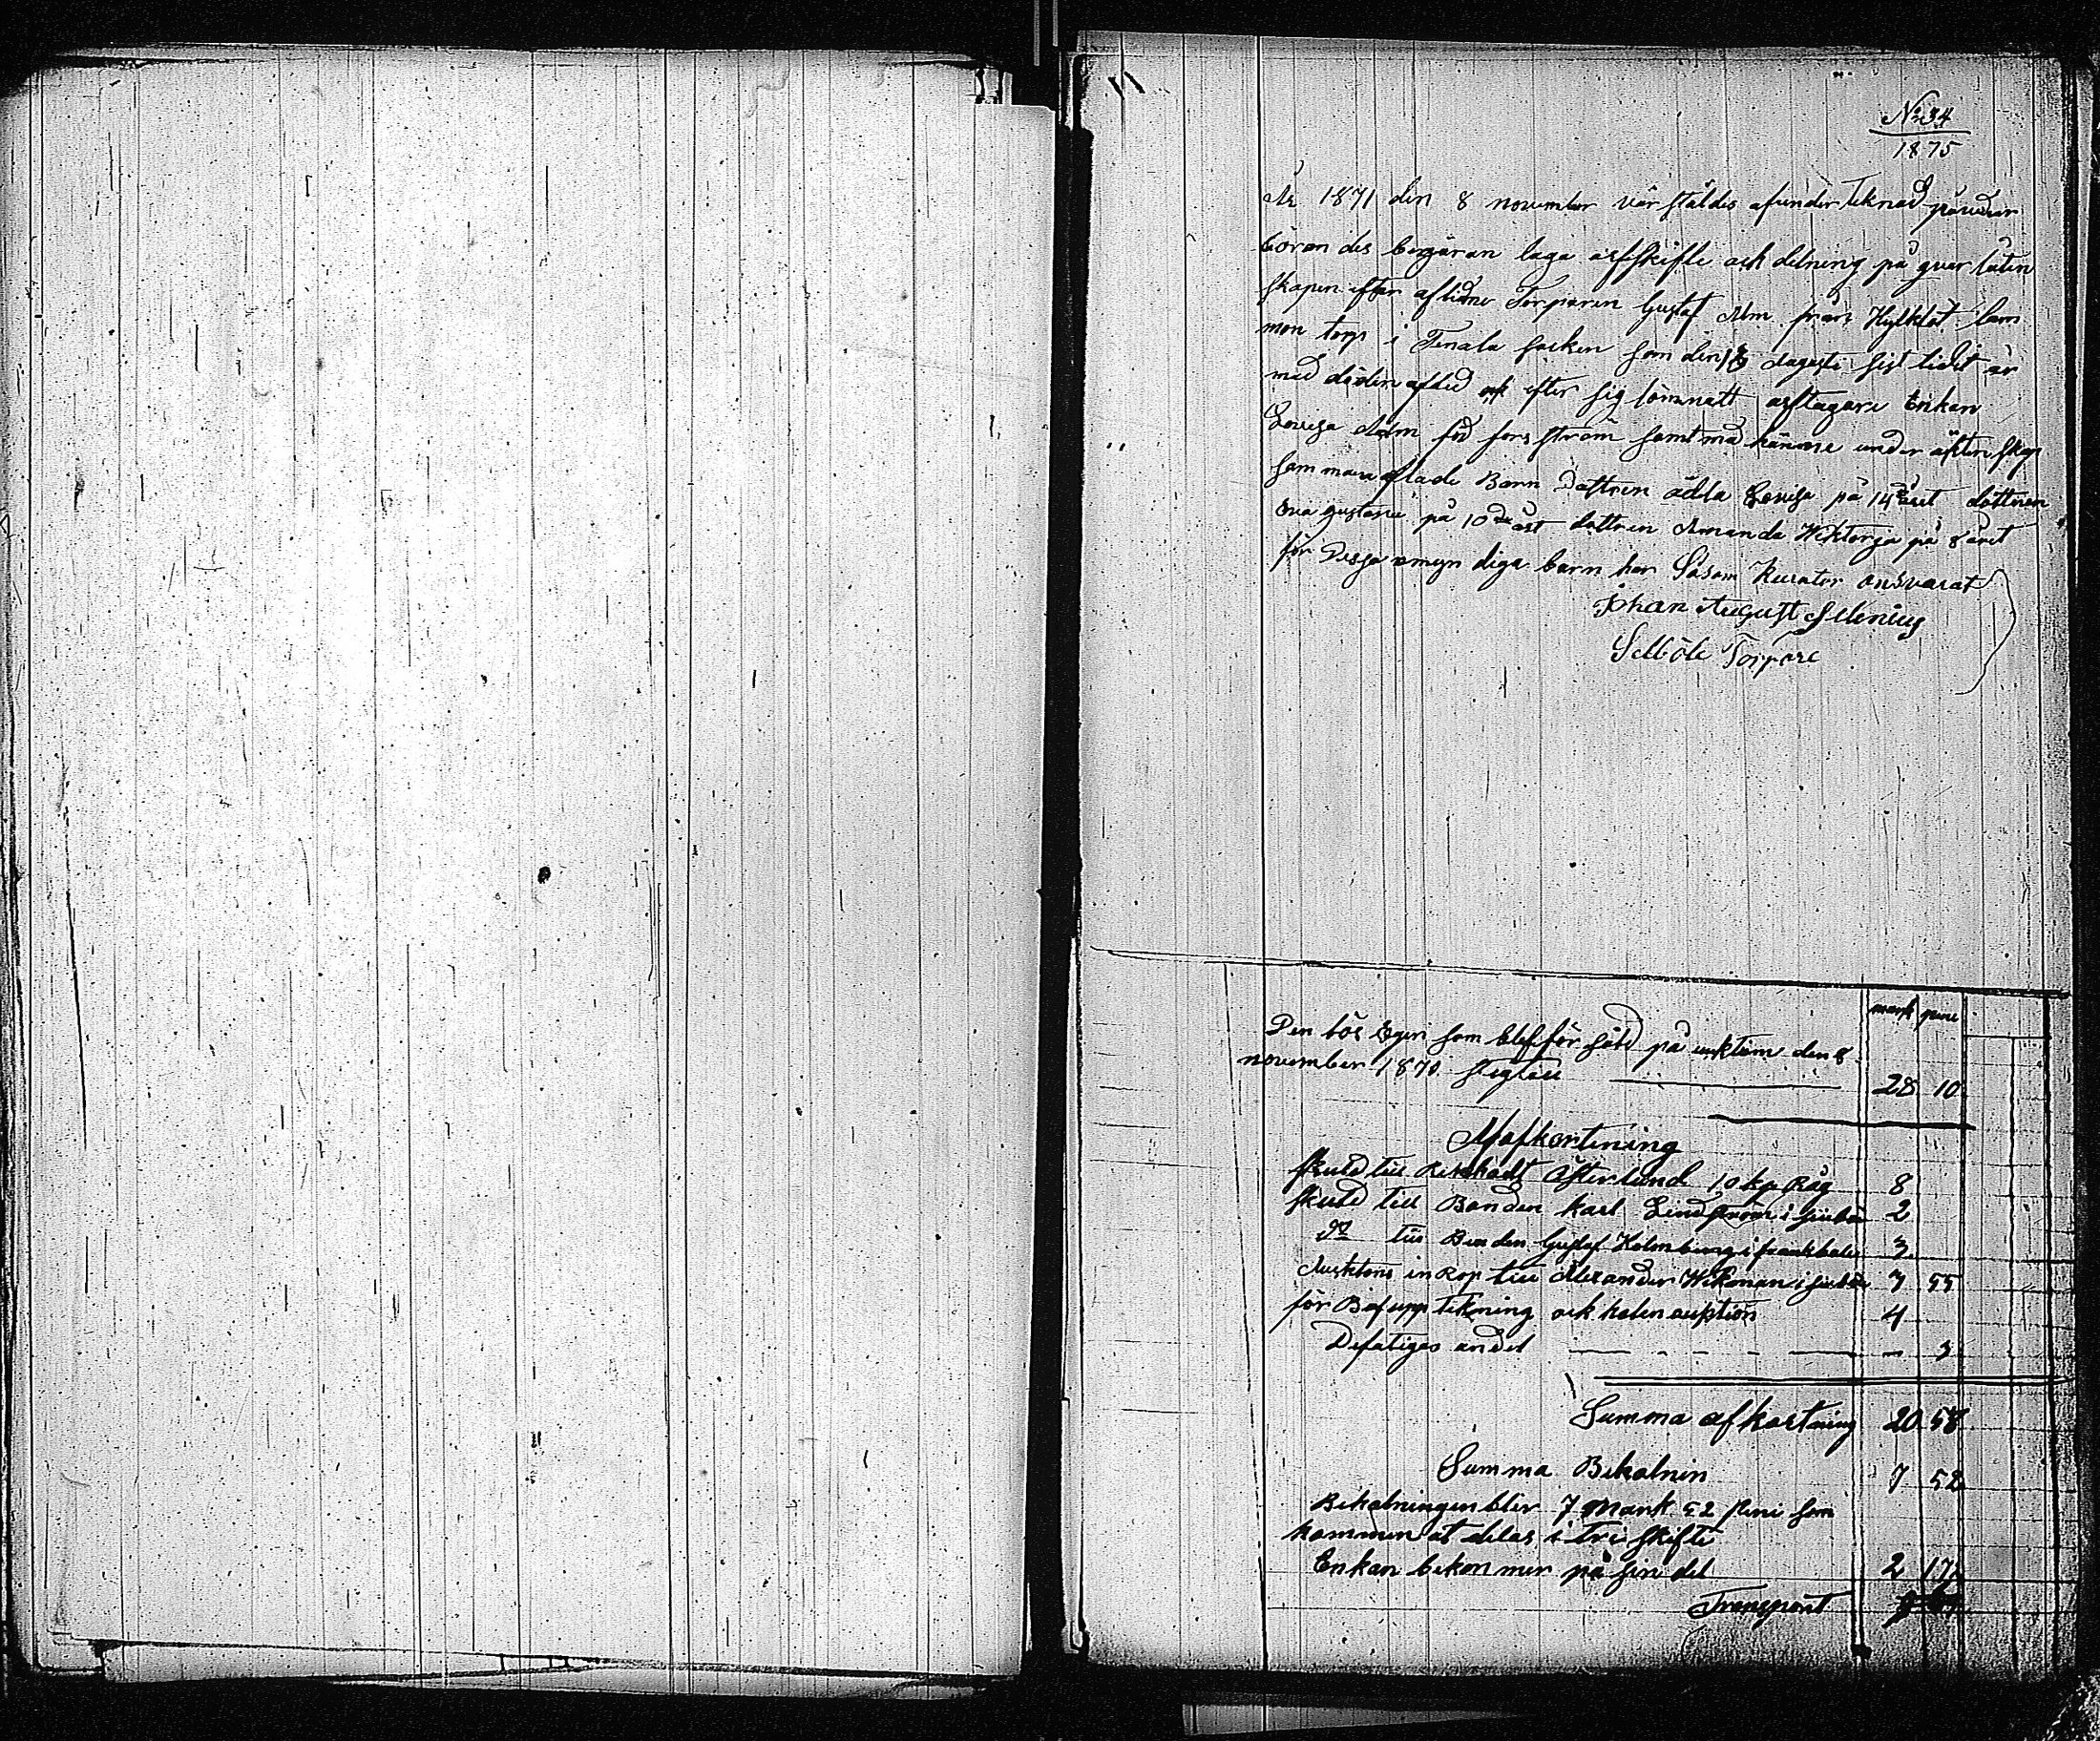 No 34
1875
År 1871 den 8 november värstäldes af under teknad på vedar
böran des begäran laga arfskifte ock delning på qvar låten
skapen efter aflidne Torparen Gustaf Alm från Hylktöt
mon torp i Tenala socken som den Augusti sist lidit år
med döden afled ock efter sig lämnatt arftagare Enkan
Lovisa Alm föd forsström samt med hänne under äktenskap
samman aflade Barn Dottren Adla Lovisa på 14de året dottren
Eva gustava på 10de åst dottren Amanda Wiktorja på 8 året
för Dessa omyn diga barn har Såsom Kurator ansvarat
Johan August Selenius
Selböle Torpare
mark peni
Den lös Egen som blef för såld på auktion den 8
november 1871 steg till 28 10
Afkortning
skuld till Österlund 10 kp Råg 8
skuld till Bonden Karl Lindström i 2
do till Bonden Gustaf Holmberg i frankbole 3
Auktons in Rop till Alexander Wikman i 3 55
för Bo upp tekning ock holen auption 4
Defatigas andel — 3
Summa afkortning 20 58
Summa Beholnin 7 52
Beholningen blir 7 Mark 52 peni som
kommer at delas i tre skifte
Enkan bekommer på sin del 2 17
Transport